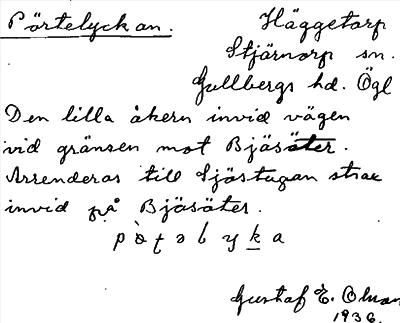 Pörtelyckan.
Häggetorp
Stjärnorp sn.
Gullbergs hd. Ögl
Den lilla åkern invid vägen
vid gränsen mot Bjäsäter.
Arrenderas till Sjöstugan strax
invid på Bjäsäter.
Gustaf E. Olman
1936.